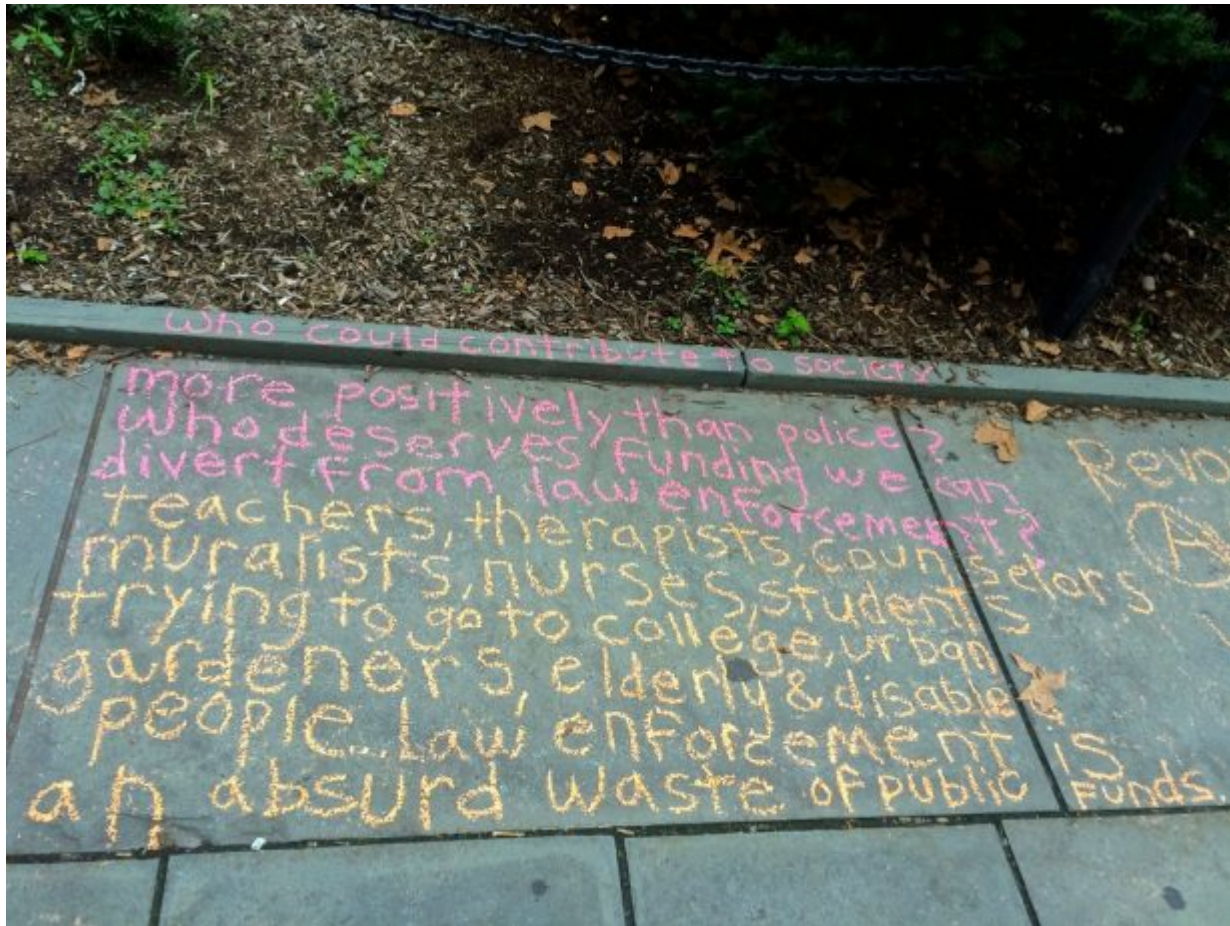 who could contribute to society
more positively than police?
who deserves funding we can
divert from law enforcement?
teachers, therapists, counselors
muralists, nurses, students
trying to go to college, urban
gardeners, elderly & disabled
people... Law enforcement is
an absurd waste of public funds.
Revo
A